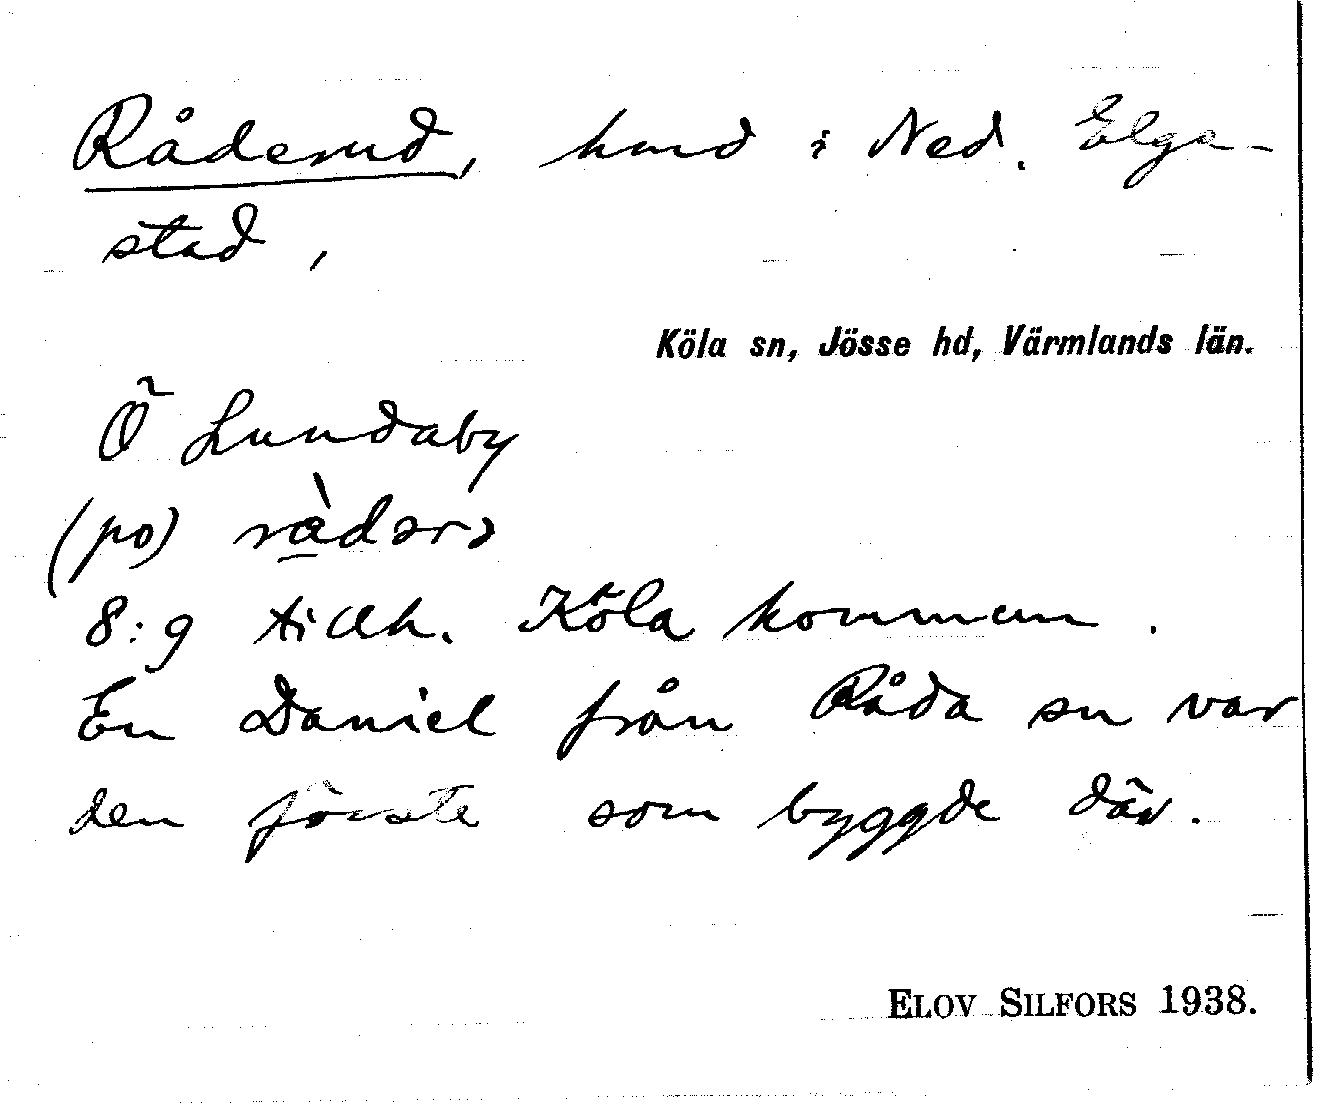 Råderud, hmd i Ned. Elga-
stad,
Köla sn, Jösse hd, Värmlands län.
Ö Lundaby
(po)
8:9 tillh. Köla kommun.
En Daniel från Råda sn var
den förste som byggde där.
ELOV SILFORS 1938.